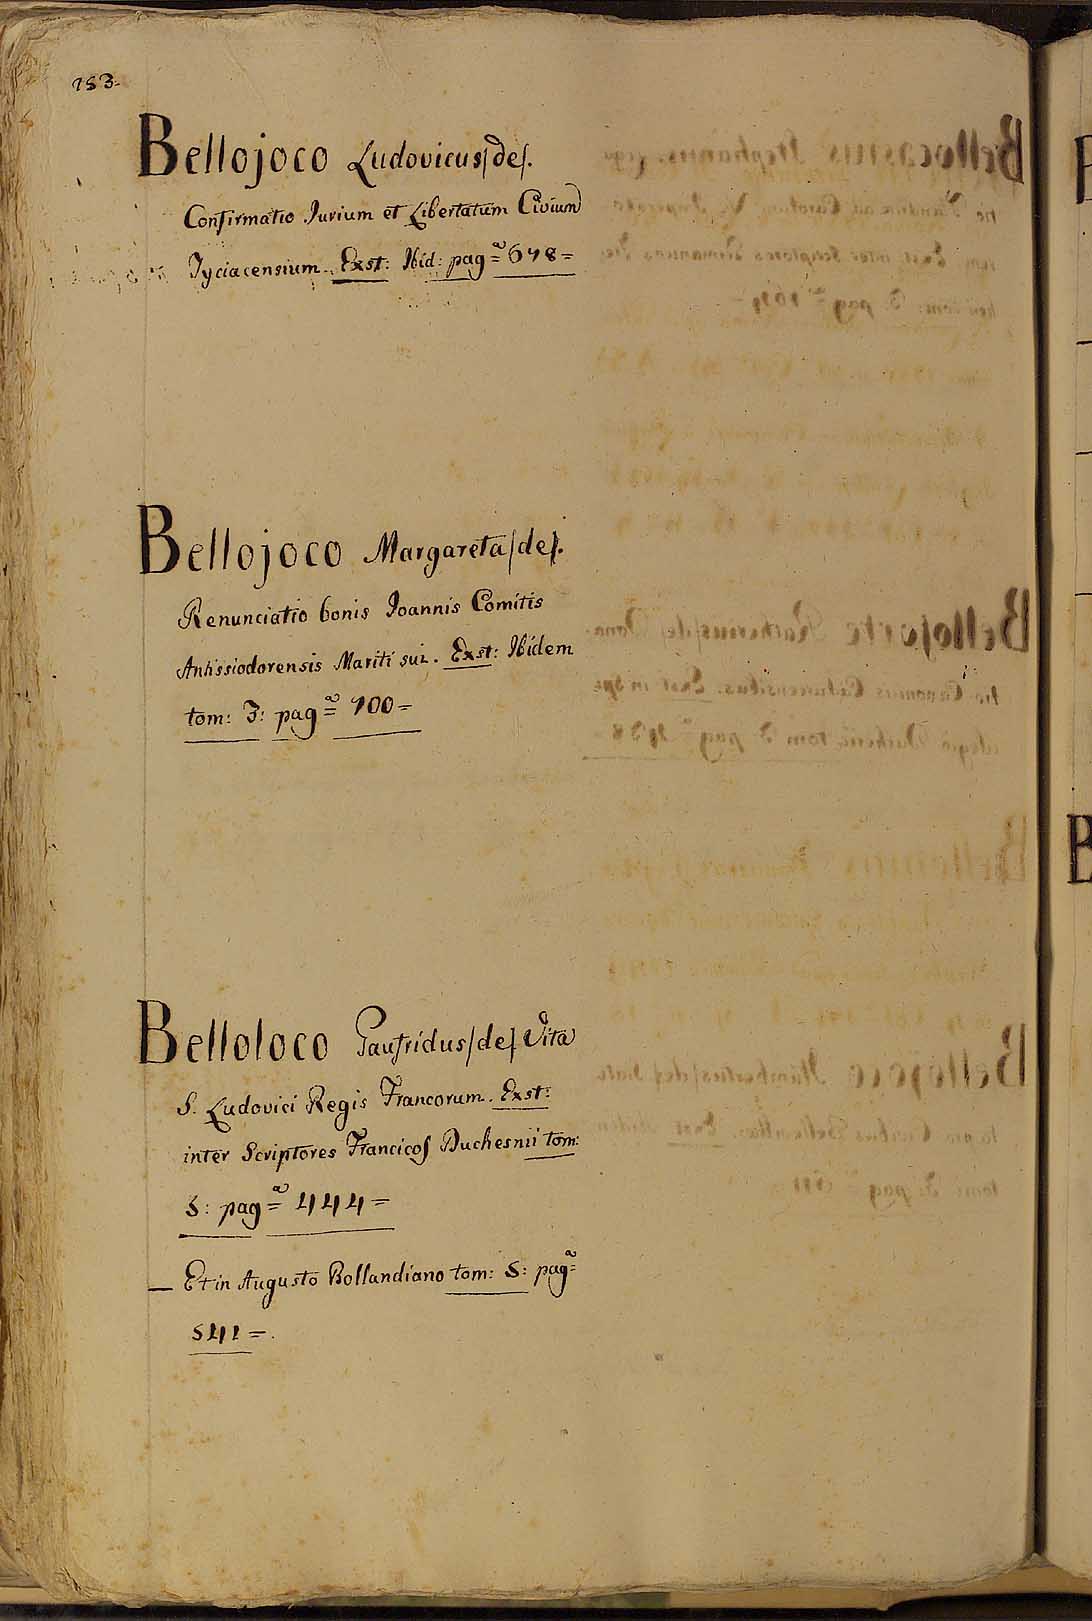 153.
Bellojoco Ludovicus /de/.
Confirmatio Jurium et Libertatum Civium
Jyciacensium. Exst: Ibid: pagª= 678=
Bellojoco Margareta /de/.
Renunciatio bonis Joannis Comitis
Antissiodorensis Mariti sui. Exst: Ibidem
tom: 3: pagª= 100=
Belloloco Gaufridus /de/ Vita
S. Ludovici Regis Francorum. Exst:
inter Scriptores Francicos Duchesnii tom:
5: pagª= 444=
— Et in Augusto Bollandiano tom: 5: pagª=
541=.